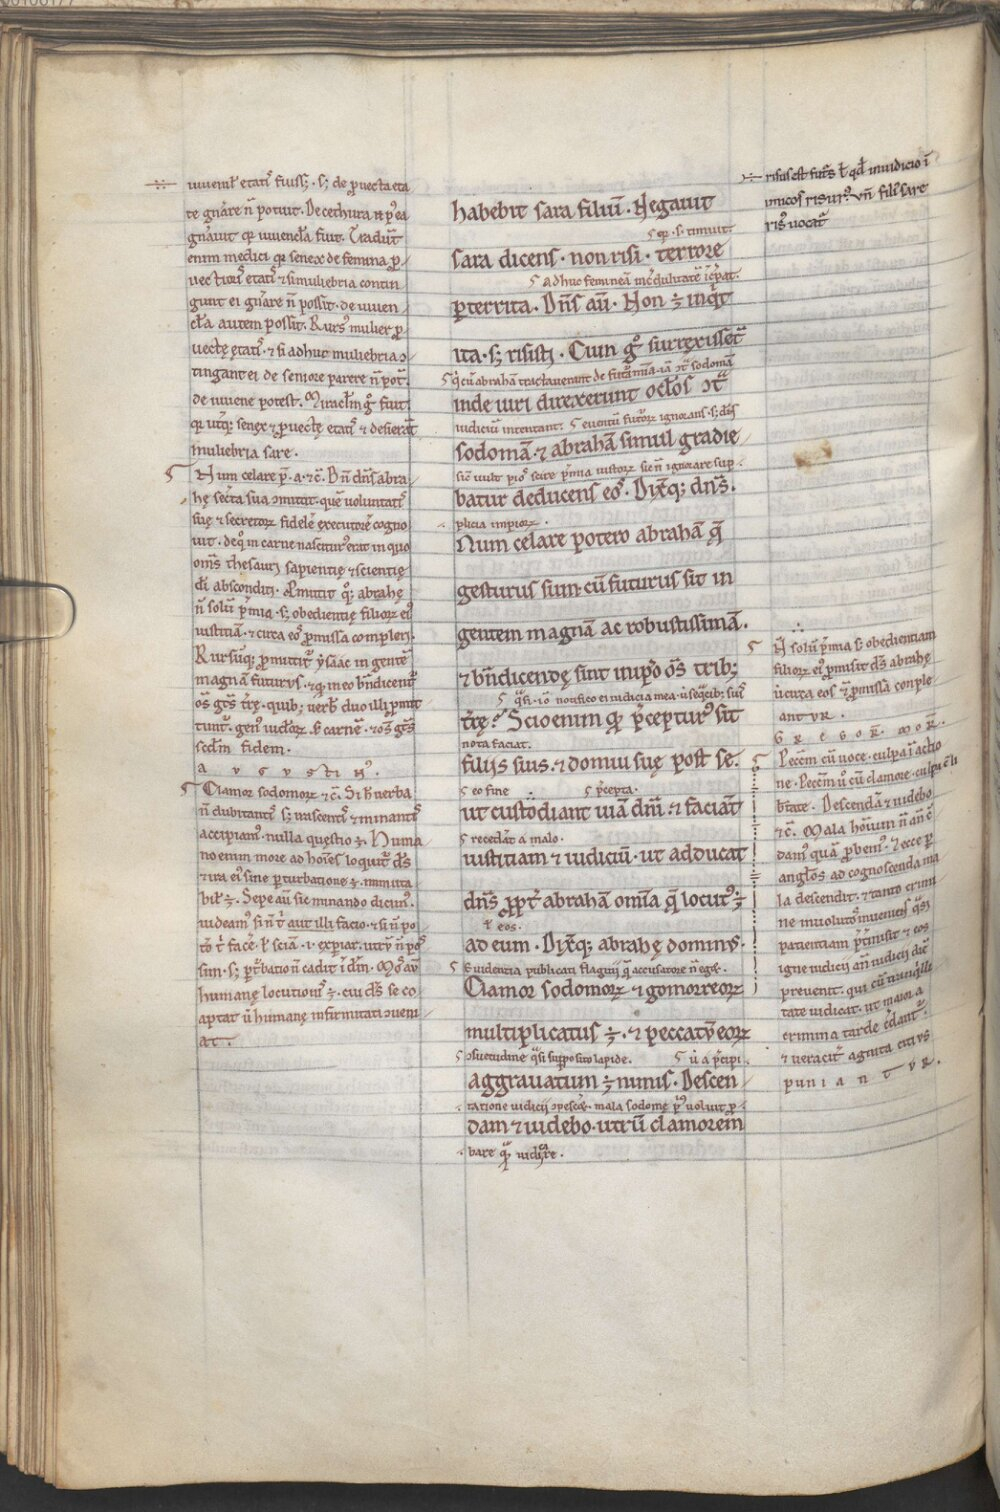 iuuenił etatis fuiss;· s; de ꝓuecta eta
te gñare ñ potuit. De cethura
gñauit qꝛ iuuencła fuit. Tradunt̄
enim medici qꝛ senex de femina ꝓ
uectioris etatis & si muliebria contin
gunt ei gñare ñ possit· de iuuen
cła autem possit. Rursꝰ mulier ꝓ
uectę ętatis· & si adhuc muliebria ↄ
tingant ei de seniore parere ñ pot̄·
de iuuene potest. Miracłm gͦ fuit
qꝛ utqꝫ senex & ꝓuectę etatis & desierāt
muliebria sare·
Num celare p̄· a· & c̄. Dn̄ dñs abra
hę secreta sua ↄmittit· quē uoluntatis
suę & secretoꝝ fidelē executorē cogno
uit· de qͦ in carne nasciturꝰ erat in quo
om̄s thesauri sapientię & scientię
di absconditi. qͦꝫ abrahę
ñ solū p̄mia· s; obedientię filioꝝ eiꝰ
iustitiā· & circa eos ꝓmissa compleri·
Rursūqꝫ ꝓmittit ysaac in gentē
magnā futurus· & qꝛ in eo bn̄dicent̄
om̄s gn̄s tr̄ę· quibꝫ uerb duo illi ꝓmit
tunt̄· genꝰ iudeoꝝ carnē· & om̄s gn̄s
scdm fidem·
a u g u s t i nꝰ.
Clamor sodomoꝝ & c̄. Si hͨ uerba
ñ dubitantis s; nascentis & minantis
accipiamꝰ· nulla questio ē. Huma
no enim more ad homīes loquit̄ ds̄
& ira eiꝰ sine perturbatione ē· inmuta
bilis ē. Sepe aū sic minando dicimꝰ·
uideamꝰ si ñ t̄ aut illi facio· & si ñ po
to t̄ facē· ł sciā· i· experiar· utrū ñ pos
sim· s; ꝑt̄batio ñ cadit ī dm̄. Mos aū
humanę locutionis ē· cui ds̄ se co
aptat ū humanę infirmitati ↄueni
at.
habebit sara filiū. Negauit
s timuit
sara dicens· non risi· terrore
adhuc femineā incͤdulitatē īcͤpat·
ꝑterrita. Dñs aū· Non ē inqͥt
ita· s; risisti. Cum gͦ surrexissēt
qͥ cū abrahā tractauerunt de futā mia· iā ↄt̄ sodomā
inde uiri direxerunt ocłos ↄt̄
iudiciū intentant· euentū futoꝝ ignorans· s; dn̄s
sodomā· & abrahā simul gradie
sic uult pios scire p̄mia iustoꝝ sic ñ ignorare sup
batur deducens eos. Dixitqꝫ dn̄s.
plicia impioꝝ·
Num celare potero abrahā q̄
gesturus sum· cū futurus sit in
gentem magnā ac robustissimā·
& bn̄dicendę sint in ipͦo om̄s tribꝫ
qͣsi· iō notifico ei iudicia mea· sequcibꝫ suis
tr̄ę? Scio enim qꝛ p̄cepturꝰ sit
nota faciat·
filijs suis· & domui suę post se·
eo fine p̄cepta·
ut custodiant uiā dn̄i· & faciant
recedat a malo·
iustitiam & iudiciū· ut adducat
dn̄s ꝓpt̄ abrahā omīa q̄ locutꝰ ē
ł eos·
ad eum. Dixitqꝫ abrahę dominꝰ·
Euidentia publicati flagitij q̄ accusatore ñ eget·
Clamor sodomoꝝ & gomorreoꝝ
multiplicatus ē· & peccatū eoꝝ
ↄsuetudine qͣsi supposito lapide·
aggrauatum ē nimis. Descen
tatione iudicij mala sodomę pͥꝰ uoluit ꝓ
dam & uidebo· utrū clamorem
bare qͣꝫ iudicare·
risus est ł qd̄ in iudicio ī
filꝰ sare
risꝰ uocat̄
Ñ solū p̄mia s; obedientiam
filioꝝ eiꝰ ꝓmisit ds̄ abrahę
ū circa eos ꝓmissa conple
antur·
G R E G O R̄. M O R̄.
Peccm̄ cū uoce· culpa ī actio
ne· Peccm̄ ū cū clamore· culpa c̄ li
btate· Descendā & uidebo
& c̄. Mala homīum ñ an̄ c̄
damꝰ quā ꝓbemꝰ· Ecce ꝑ
angłos ad cognoscenda ma
la descendit· & tanto crimi
ne inuolutos inueniens
patientiam p̄t̄misit & eos
igne iudicij an̄ iudicij diē
preuenit· qui cū tranqͥlli
tate iudicat· ut maiora
crimina tarde cͤdant̄·
& ueracit̄ agnita citius
puniantur.